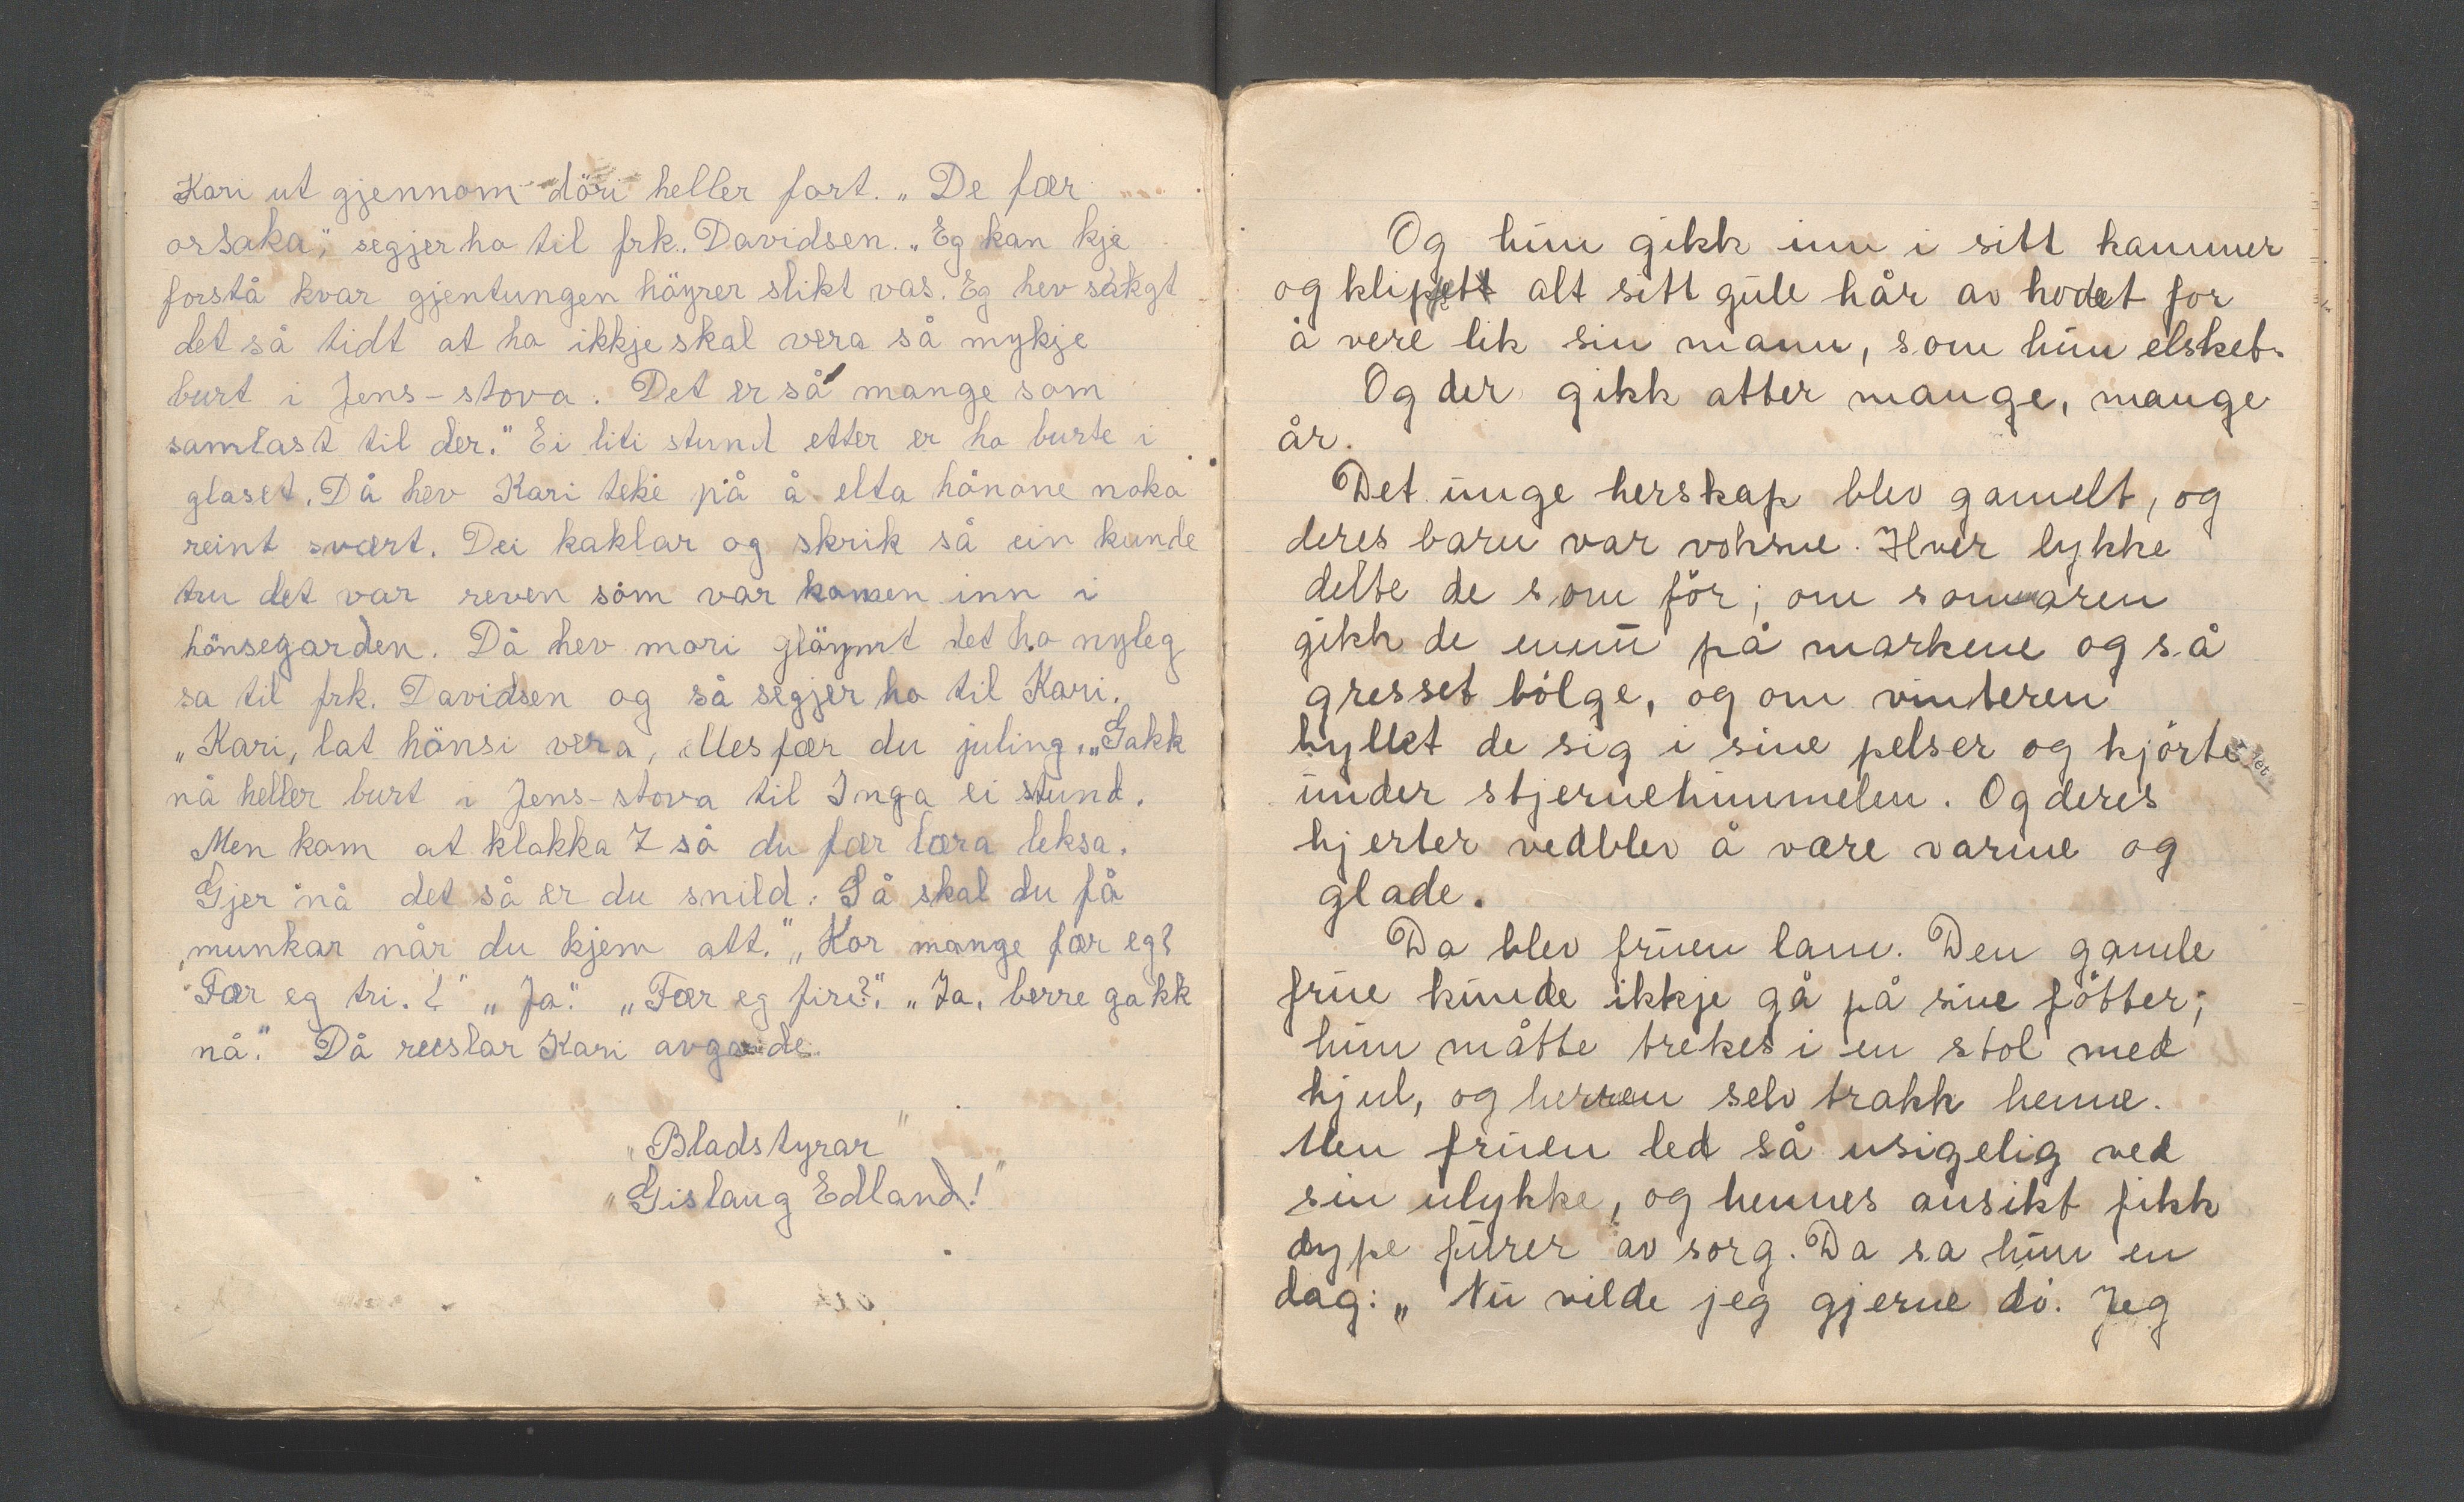 Kari ut gjennom döri heller fort. „De fær
orsaka", segjer ho til frk. Davidsen. „Eg kan kje
forstå kvar gjentungen höyrer slikt vas. Eg hev sakgt
det så tidt at ho ikkje skal vera så mykje
burt i Jens-stova. Det er så mange som
samlast til der." Ei liti stund etter er ho burte i
glaset. Då hev Kari teke på å elta hönone noko
reint svært. Dei kaklar og skrik så ein kunde
tru det var reven som var komen inn i
hönsegarden. Då hev mori glöymt det ho nyleg
sa til frk. Davidsen og så segjer ho til Kari.
„Kari, lat hönsi vera, elles fær du juling. „Gakk
nå heller burt i Jens-stova til Inga ei stund.
Men kom at klokka 7 så du fær læra leksa.
Gjer nå det så er du snild. Så skal du få
munkar når du kjem att." „Kor mange fær eg?
Fær eg tri.?" „Ja." „Fær eg fire?". „Ja, berre gakk
nå." Då ruslar Kari avgarde.
„Bladstyrar"
„Gislaug Edland!"
Og hun gikk inn i sitt kammer
og klippet alt sitt gule hår av hodet for
å vere lik sin mann, som hun elsket.
Og der gikk atter mange, mange
år.
Det unge herskap blev gamelt, og
deres barn var voksne. Hver lykke
delte de som för; om sommaren
gikk de ennu på markene og så
gresset bölge, og om vinteren
hyllet de sig i sine pelser og kjörte
under stjernehimmelen. Og deres
hjerter vedblev å være varme og
glade.
Da blev fruen lam. Den gamle
frue kunde ikkje gå på sine fötter;
hun måtte trekes i en stol med
hjul, og herren selv trakk henne.
Men fruen led så usigelig ved
sin ulykke, og hennes ansikt fikk
dype furer av sorg. Da sa hun en
dag: „Nu vilde jeg gjerne dö. Jeg